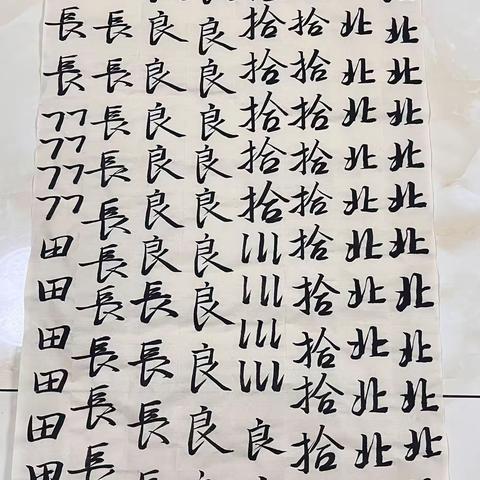 北北北北北北北北北北
北北北北北北北北北北
拾拾拾拾拾拾拾拾拾拾
拾拾拾拾拾良
良良良良良良良良良
良良良良良良長長長
長長長長長長長長長長
長長田田田田田田